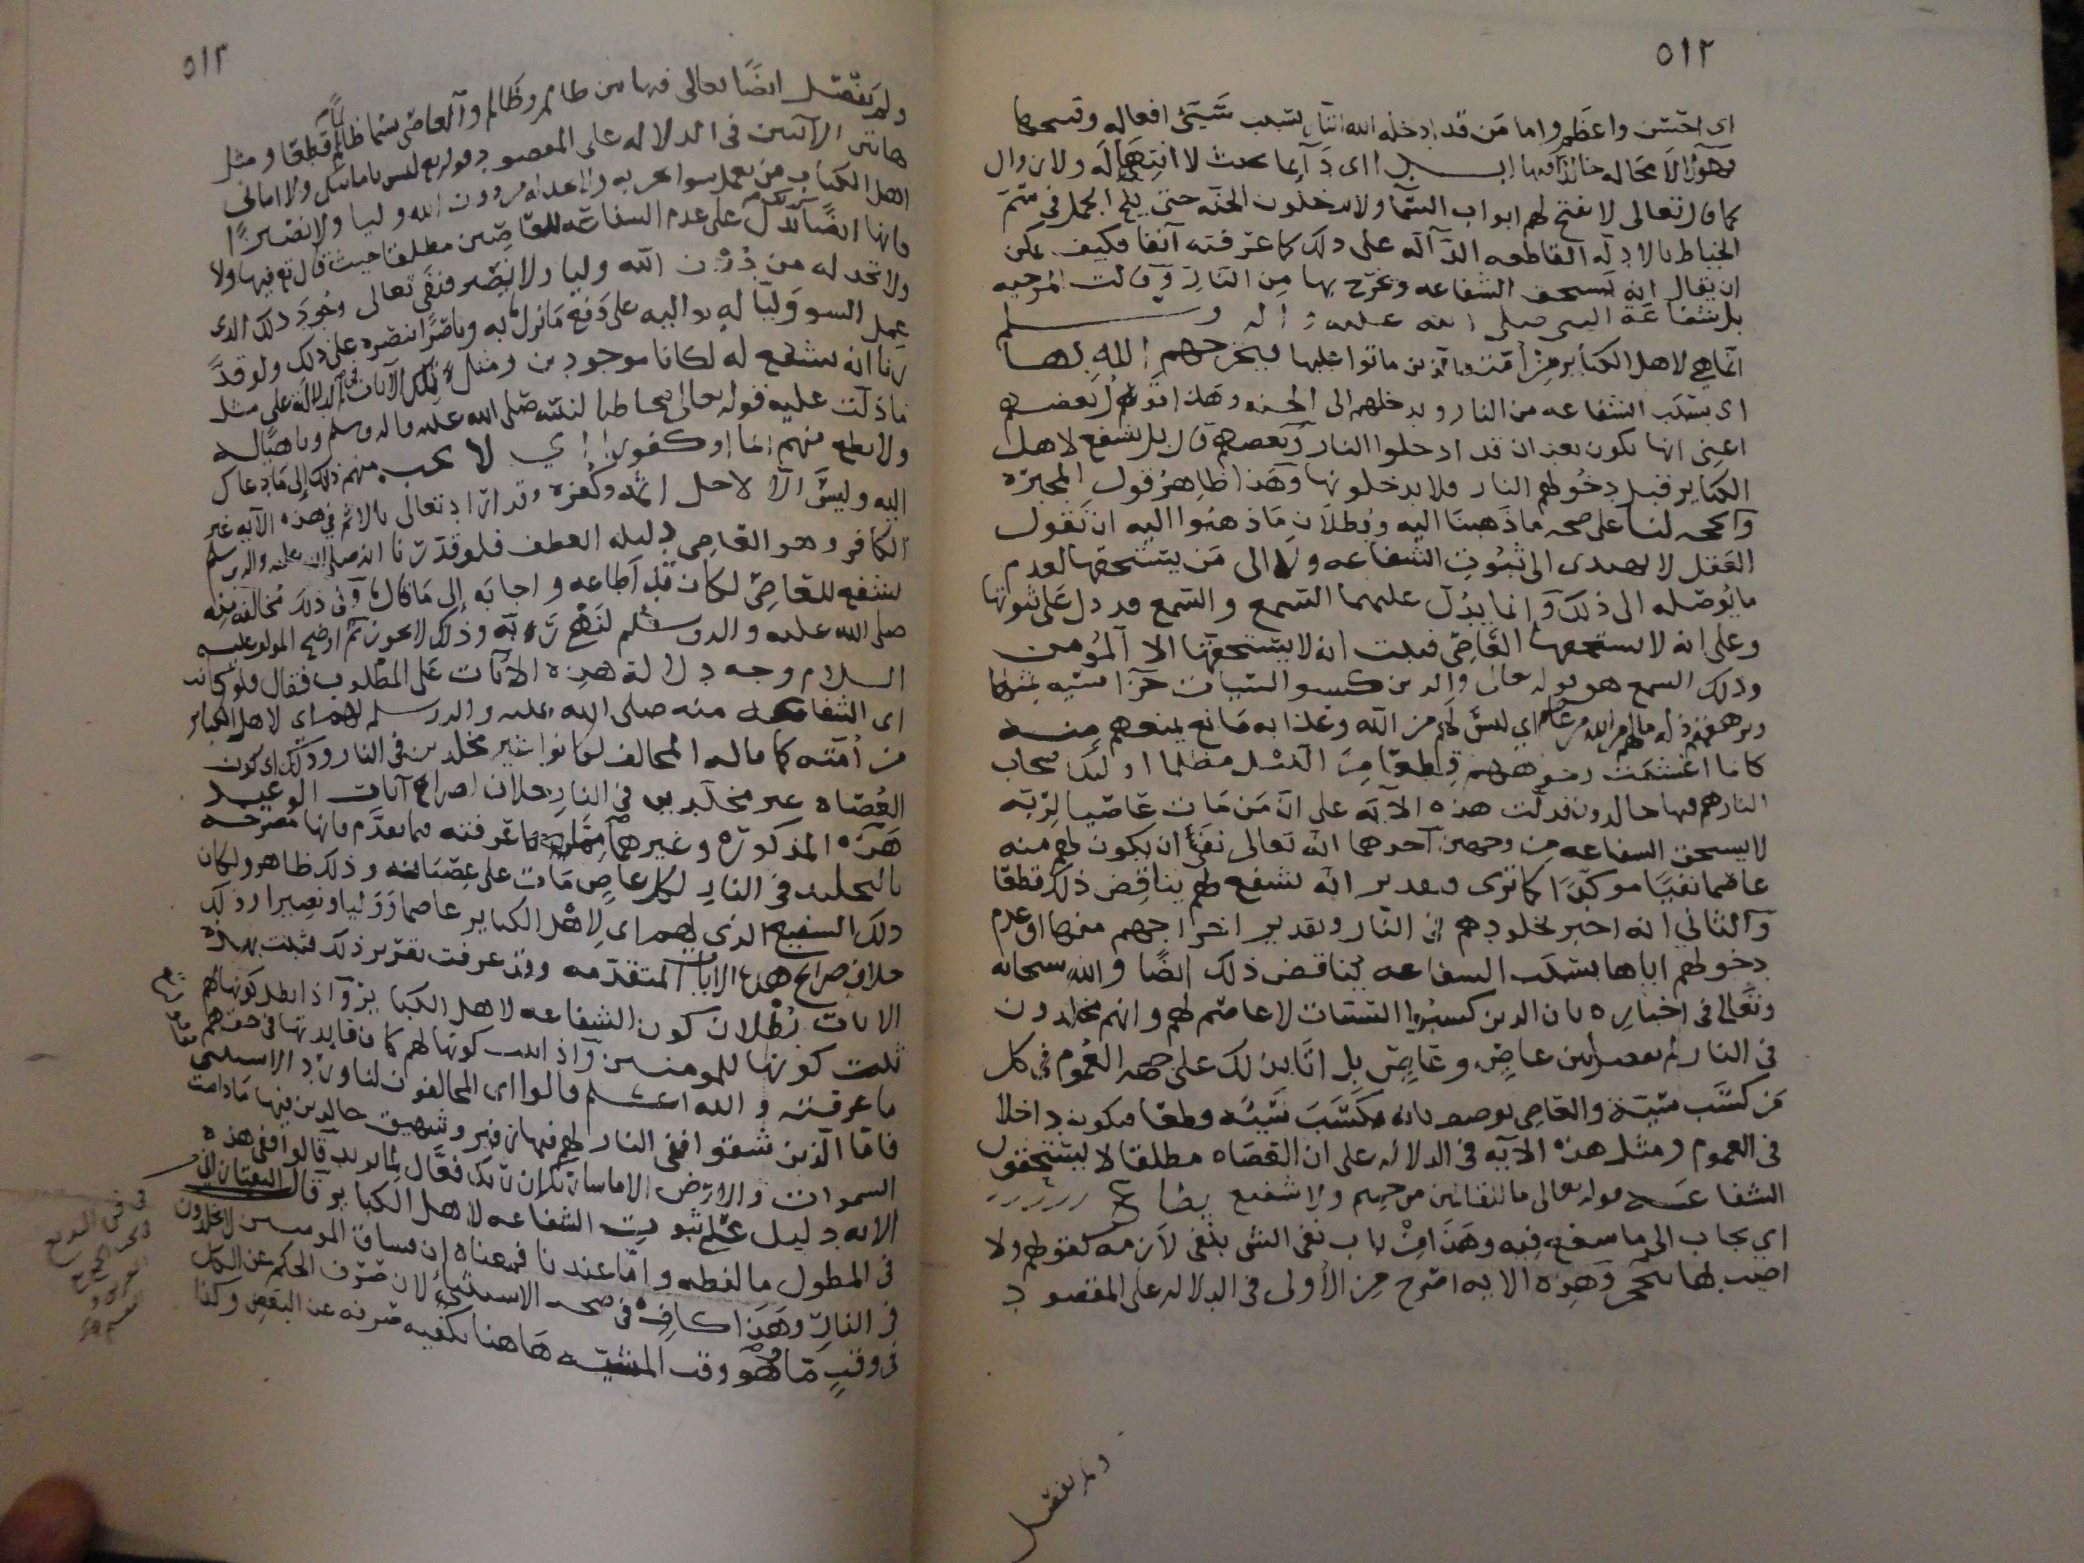 ٥١٢
اى احسن واعظم واما من قد ادخله الله النار بسبب سيئ افعاله وقبيحها
فهو لا محاله خالدا فيها ابدا اى دآيما بحيث لا انتهآ له ولا زوال
كما قال تعالى لا تفتح لهم ابواب السمآ ولا يدخلون الجنه حتى يلج الجمل فى سم
الخياط بالادله القاطعه الدآله على ذلك كما عرفته آنفا فكيف يمكن
ان يقال انه يستحق الشفاعه ويخرج بها من النار وقالت المرجيه
بل شفاعة النبى صلى الله عليه واله وسلم
انما هي لاهل الكبآير من امته الذين ماتوا عليها فيخرجهم الله بها
اى بسبب الشفاعه من النار ويدخلهم الى الجنه وهذا قول بعضهم
اعنى انها تكون بعد ان قد ادخلوا النار وبعضهم قال بل يشفع لاهل
الكباير قبل دخولهم النار فلا يدخلونها وهذا ظاهر قول المجبره
والحجه لنا على صحه ما ذهبنا اليه وبطلان ما ذهبوا اليه ان نقول
العقل لا يهدى الى ثبوت الشفاعه ولا الى من يستحقها لعدم
ما يوصله الى ذلك وانما يدل عليهما السمع والسمع قد دل على ثبوتها
وعلى انه لا يستحقها العاصى فثبت انه لا يستحقها الا المومن
وذلك السمع هو قوله تعالى والذين كسبوا السيئات جزآ سيئه بمثلها
وترهقهم ذله مالهم من الله من عاصم اي ليس لهم من الله وعذابه مانع يمنعهم منه
كانما اغشيت وجوههم قطعا من الليل مظلما اولئك اصحاب
النار هم فيها خالدون فدلت هذه الآيه على ان من مات عاصيا لربه
لا يستحق الشفاعه من وجهين احدهما انه تعالى نفى ان يكون لهم منه
عاصما نفيا موكدا كما ترى وتقدير انه يشفع لهم يناقض ذلك قطعا
والثاني انه اخبر بخلودهم فى النار وتقدير اخراجهم منها او عدم
دخولهم اياها بسبب الشفاعه يناقض ذلك ايضا والله سبحانه
وتعالى فى اخباره بان الذين كسبوا السيئات لا عاصم لهم وانهم مخلدون
فى النار لم يفصل بين عاصٍ وعاصٍ بل اتا بذلك على جهه العموم فى كل
من كسب سيئة والعاصى يوصف بانه مكتسب سيئه قطعا فيكون داخلا
فى العموم ومثل هذه الآيه فى الدلاله على ان العصاه مطلقا لا يستحقون
الشفاعه قوله تعالى ما للظالمين من حميم ولا شفيع يطاع
اي يجاب الى ما يشفع فيه وهذا من باب نفى الشى بنفى لازمه كقولهم ولا
الضب بها ينجحر وهذه الايه اصرح من الأولى فى الدلاله على المقصود
ولم يفصل
٥١٣
ولم يفصل ايضا تعالى فيها بين ظالم وظالم والعاصى يسما ظالما قطعا ومثل
هاتين الآيتين فى الدلاله على المقصود قوله تع ليس بامانيكم ولا امانى
اهل الكتاب من يعمل سوا يجز به ولا يجد له من دون الله وليا ولا نصيرا
فانها ايضا تدل على عدم الشفاعه للعاصين مطلقا حيث قال تع فيها ولا
ولا يجد له من دون الله وليا ولا نصير فنفى تعالى وجود ذلك الذى
عمل السو وليا له يواليه على دفع ما نزل به وناصرا ينصره على ذلك ولو قد
رنا انه يشفع له لكانا موجودين ومثل تلك الآيات فى الدلاله على مثل
ما دلت عليه قوله تعالى مخاطبا لنبيه صلى الله عليه واله وسلم وناهيا له
ولا تطع منهم آثما او كفورا اي لا تجب منهم ذلك الى ما دعاك
اليه وليس الا لاجل اثمه وكفره وقد اراد تعالى بالاثم فى هذه الآيه غير
الكافر وهو العاصى بدليله العطف فلو قدرنا انه صلى الله عليه واله وسلم
يشفع للعاصى لكان قد اطاعه واجابه الى ما قال وفى ذلك مخالفه منه
صلى الله عليه واله وسلم لنهى ربه وذلك لا يجوز ثم اوضح المولف عليه
السلام وجه دلالة هذه الآيات على المطلوب فقال فلو كانت
اى الشفاعه منه صلى الله عليه واله وسلم لهم اي لاهل الكباير
من امته كما قاله المخالف لكانوا غير مخلدين فى النار وذلك اى كون
العصاه غير مخلدين فى النار خلاف صرايح آيات الوعيد
هذه المذكوره وغيرها مما عرفته فيما تقدم فانها مصرحه
بالتخليد فى النار لكل عاص مات على عصيانه وذلك ظاهر ولكان
ذلك الشفيع الذي لهم اى لاهل الكباير عاصما ووليا ونصيرا وذلك
خلاف صرايح هذه الايات المتقدمه وقد عرفت تقرير ذلك فثبت بهذه
الايات بطلان كون الشفاعه لاهل الكباير واذا بطل كونها لهم
ثبت كونها للمومنين واذا ثبت كونها لهم كان فايدتها فى حقهم
ما عرفته والله اعلم قالوا اى المخالفون لنا ورد الاستثنى
فاما الذين شقوا ففى النار لهم فيها زفير وشهيق خالدين فيها ما دامت
السموات والارض الا ما شا ربك ان ربك فعال لما يريد قالوا ففى هذه
الايه دليل على ثبوت الشفاعه لاهل الكباير قال التفتازانى
فى المطول ما لفظه واما عندنا فمعناه ان فساق المومنين لا يخلدون
فى النار وهذا كافٍ فى صحه الاستثنى لان صرف الحكم عن الكل
فى وقتٍ ما وهو وقت المشيه هاهنا يكفيه صرفه عن البعض وكذا
فى فن البديع